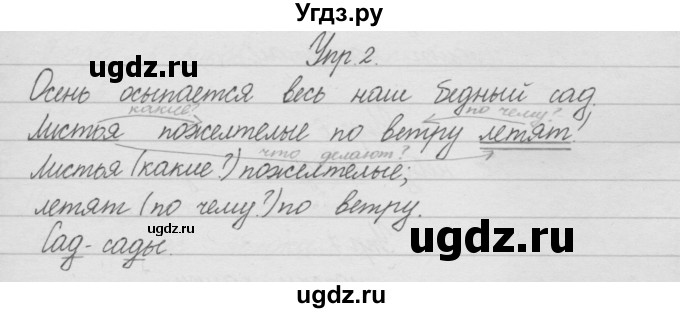 Угдз.ру
Упр. 2.
ugdz.ru
ugdz.ru
Осень осыпается весь наш бедный сад,
какие? по чему?
Листья пожелтелые по ветру летят.
что делают?
Листья (какие?) пожелтелые;
летят (по чему?) по ветру.
ugdz.ru
ugdz.ru
Сад - сады.
ugdz.ru